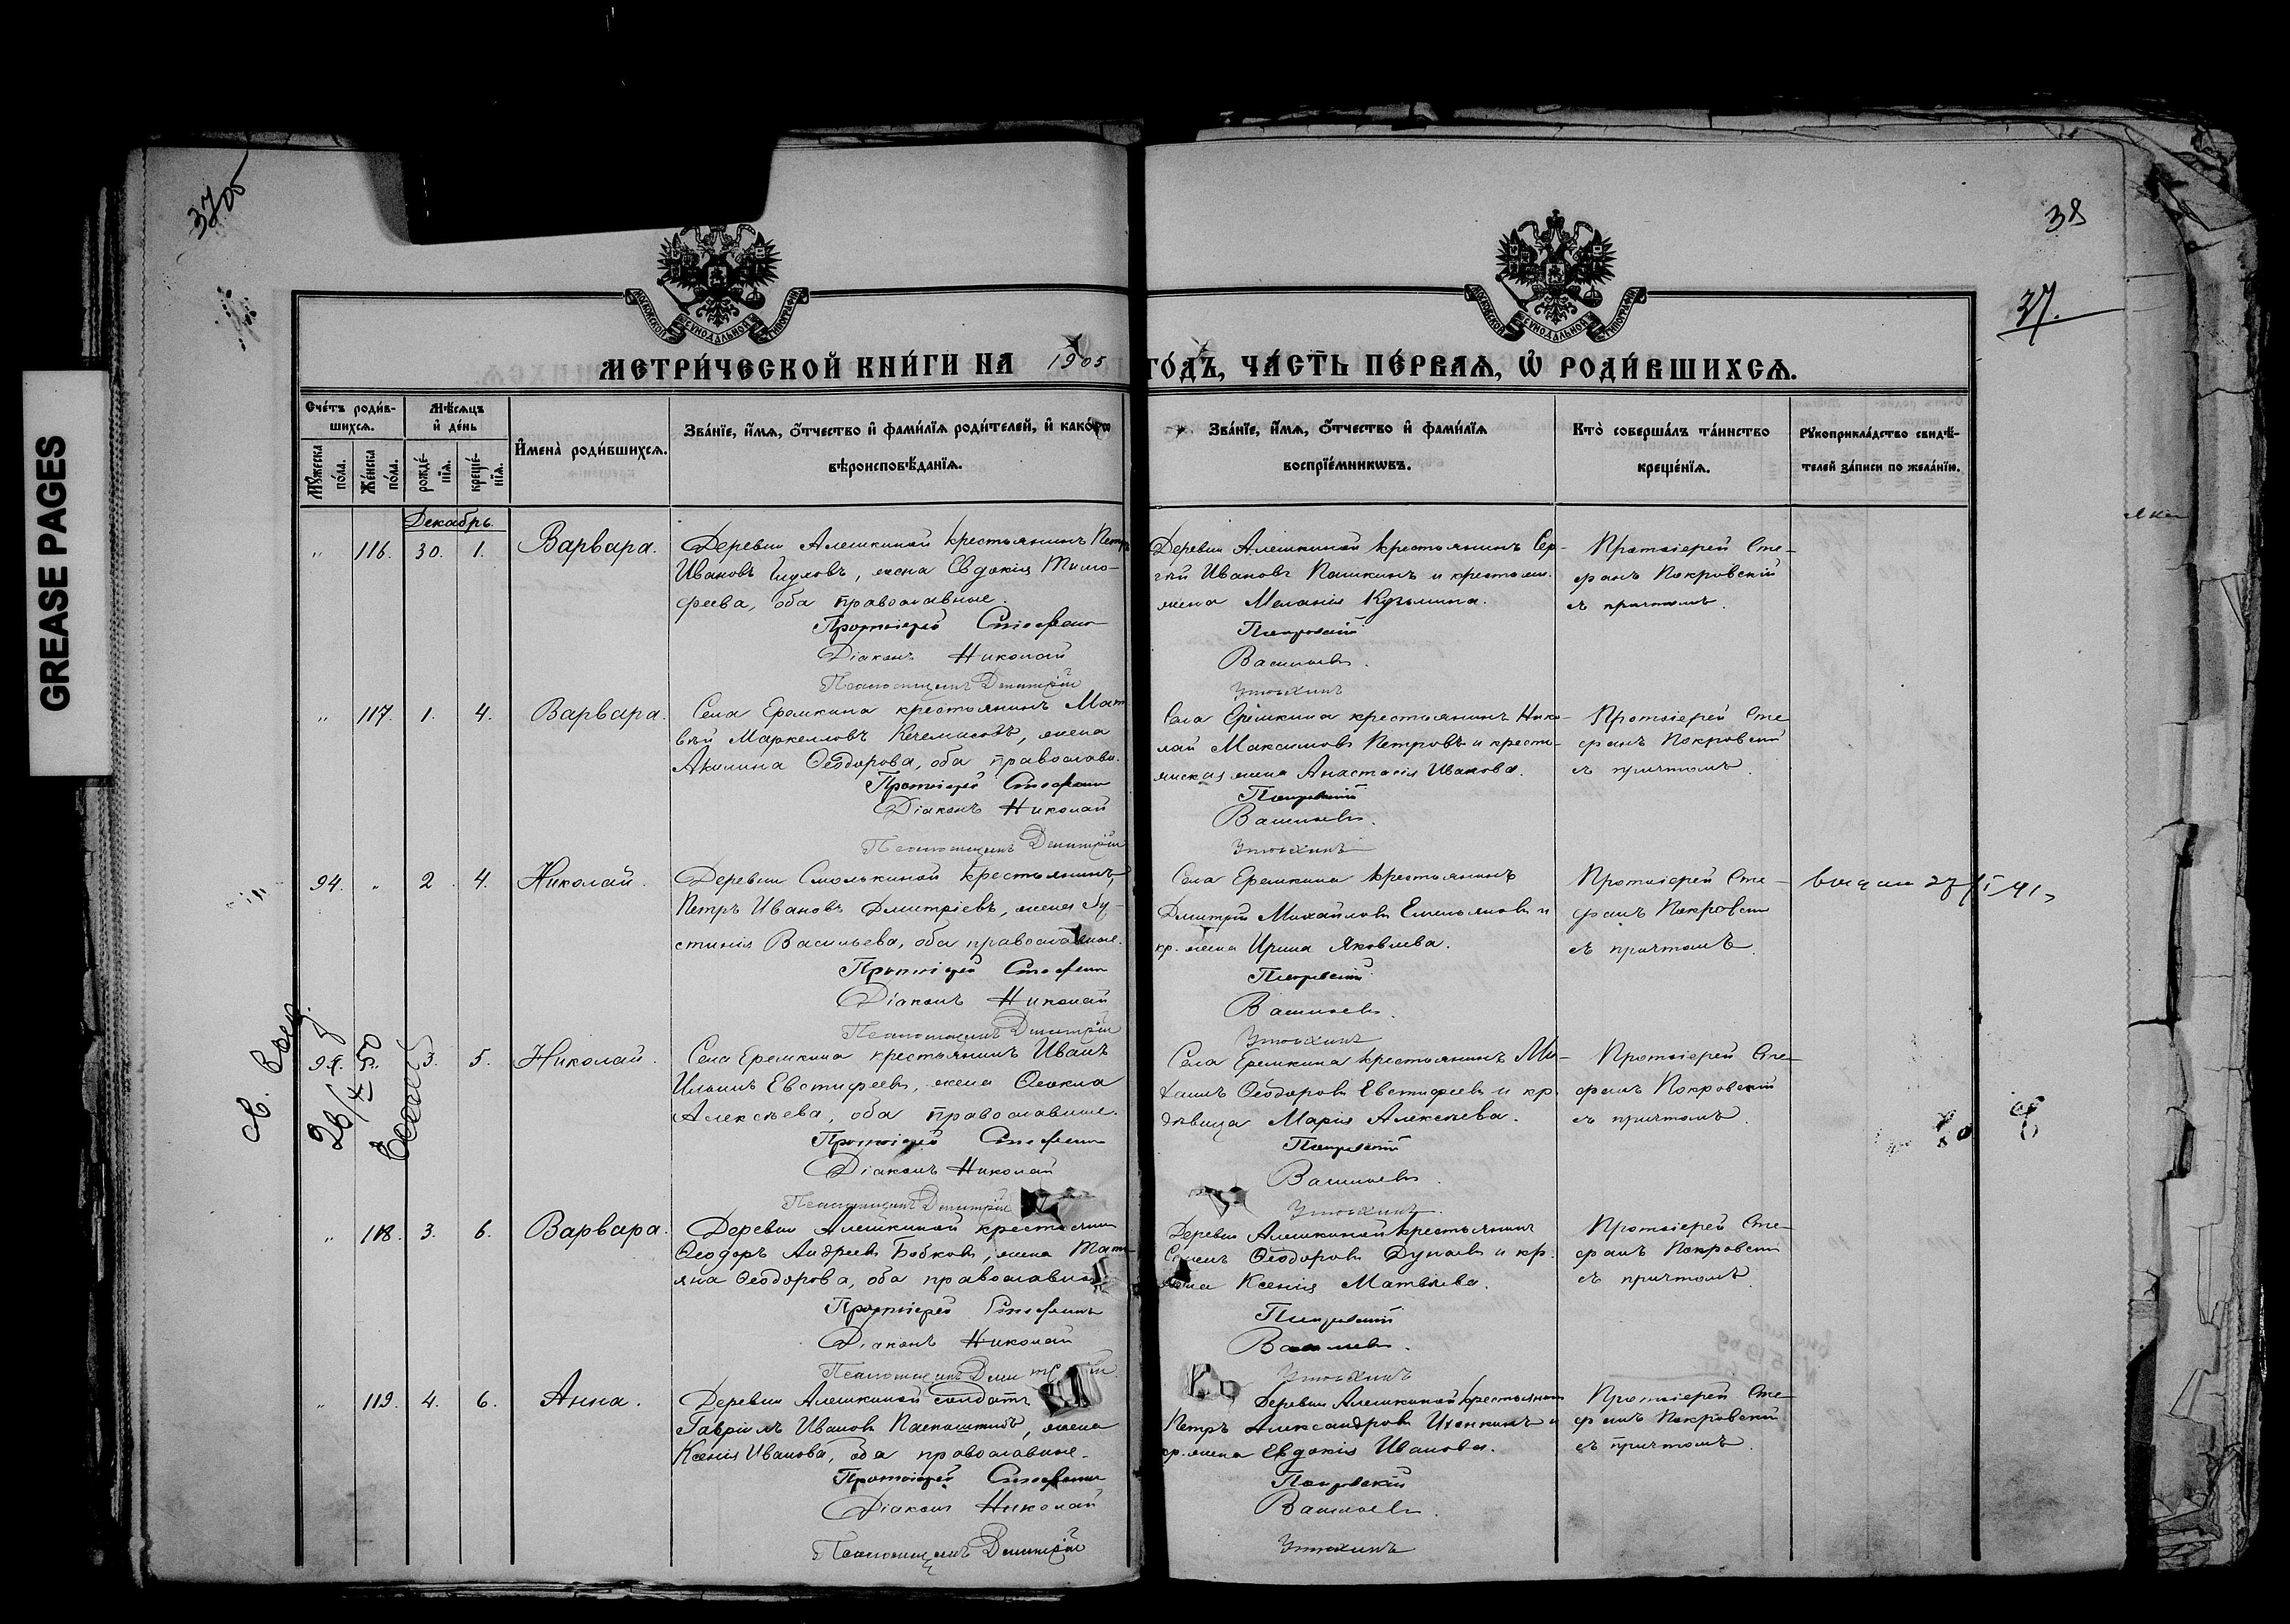 GREASE PAGES
38
37.
МОСКОВСКОЙ СѴНОДАЛЬНОЙ ТИПОГРАФІИ
МОСКОВСКОЙ СѴНОДАЛЬНОЙ ТИПОГРАФІИ
МЕТРИ́ЧЕСКОЙ КНИ́ГИ НА 1905 ГО́ДЪ, ЧА́СТЬ ПЕ́РВАѦ, Ѡ РОДИ́ВШИХСѦ.
Сче́тъ роди́в-
шихсѧ.
Мꙋжеска по́ла.
Же́нска по́ла.
Мѣ́сѧцъ и҆ де́нь
рожде́-нїѧ.
креще́-нїѧ.
И҆мена̀ роди́вшихсѧ.
Зва́нїе, и҆́мѧ, ѻ҆́тчество и҆ фами́лїѧ роди́телей, и҆ како́гѡ
вѣроисповѣ́данїѧ.
Зва́нїе, и҆́мѧ, ѻ҆́тчество и҆ фами́лїѧ
воспрїе́мникѡвъ.
Кто̀ соверша́лъ та́инство
креще́нїѧ.
Рꙋкоприкла́дство свидѣ́-
телей за́писи по жела́нїю.
Декабрь.
„ 116. 30. 1. Варвара.
Деревни Алешкиной крестьянинъ Петръ
Ивановъ, жена Евдокія Тимо-
феева, оба православные.
Протоіерей Стефанъ
Діаконъ Николай
Псаломщикъ Димитрій
Деревни Алешкиной крестьянинъ Сер-
гѣй Ивановъ Пашкинъ и крестьян.
жена Меланія Кузьмина.
Покровскій
Васильевъ.
Утѣхинъ
Протоіерей Сте-
фанъ Покровскій
съ причтомъ.
„ 117. 1. 4. Варвара.
Села Еремкина крестьянинъ Мат
вѣй Маркелловъ, жена
Акилина Ѳеодорова, оба православн.
Протоіерей Стефанъ
Діаконъ Николай
Псаломщикъ Димитрій
Села Еремкина крестьянинъ Нико-
лай Максимовъ Петровъ и кресть-
янская жена Анастасія Иванова.
Покровскій
Васильевъ.
Утѣхинъ
Протоіерей Сте
фанъ Покровскій
съ причтомъ.
94. „ 2. 4. Николай.
Деревни Смолькиной крестьянинъ
Петръ Ивановъ Дмитріевъ, жена Іу-
стинія Васильева, оба православные.
Протоіерей Стефанъ
Діаконъ Николай
Псаломщикъ Димитрій
Села Еремкина крестьянинъ
Дмитрій Михайловъ Емельяновъ и
кр. жена Ирина Яковлева.
Покровскій
Васильевъ.
Утѣхинъ
Протоіерей Сте-
фанъ Покровскій
съ причтомъ.
95. „ 3. 5. Николай.
Села Еремкина крестьянинъ Иванъ
Ильинъ Евстифеевъ, жена Ѳекла
Алексѣева, оба православные.
Протоіерей Стефанъ
Діаконъ Николай
Псаломщикъ Димитрій
Села Еремкина крестьянинъ Ми-
хаилъ Ѳеодоровъ Евстифеевъ и кр.
дѣвица Марія Алексѣева.
Покровскій
Васильевъ.
Утѣхинъ.
Протоіерей Сте-
фанъ Покровскій
съ причтомъ.
„ 118. 3. 6. Варвара.
Деревни Алешкиной крестьянинъ
Ѳеодоръ Андреевъ Бобковъ, жена Тать
яна Ѳеодорова, оба православные
Протоіерей Стефанъ
Діаконъ Николай
Псаломщикъ Димитрій
Деревни Алешкиной крестьянинъ
Семенъ Ѳеодоровъ Дунаевъ и кр.
жена Ксенія Матвѣева.
Покровскій
Васильевъ.
Утѣхинъ
Протоіерей Сте-
фанъ Покровскій
съ причтомъ.
„ 119. 4. 6. Анна.
Деревни Алешкиной солдатъ
Гавріилъ Ивановъ, жена
Ксенія Иванова, оба православные.
Протоіерей Стефанъ
Діаконъ Николай
Псаломщикъ Димитрій
Деревни Алешкиной крестьянинъ
Петръ Александровъ и
кр. жена Евдокія Иванова.
Покровскій
Васильевъ.
Утѣхинъ
Протоіерей Сте-
фанъ Покровскій
съ причтомъ.